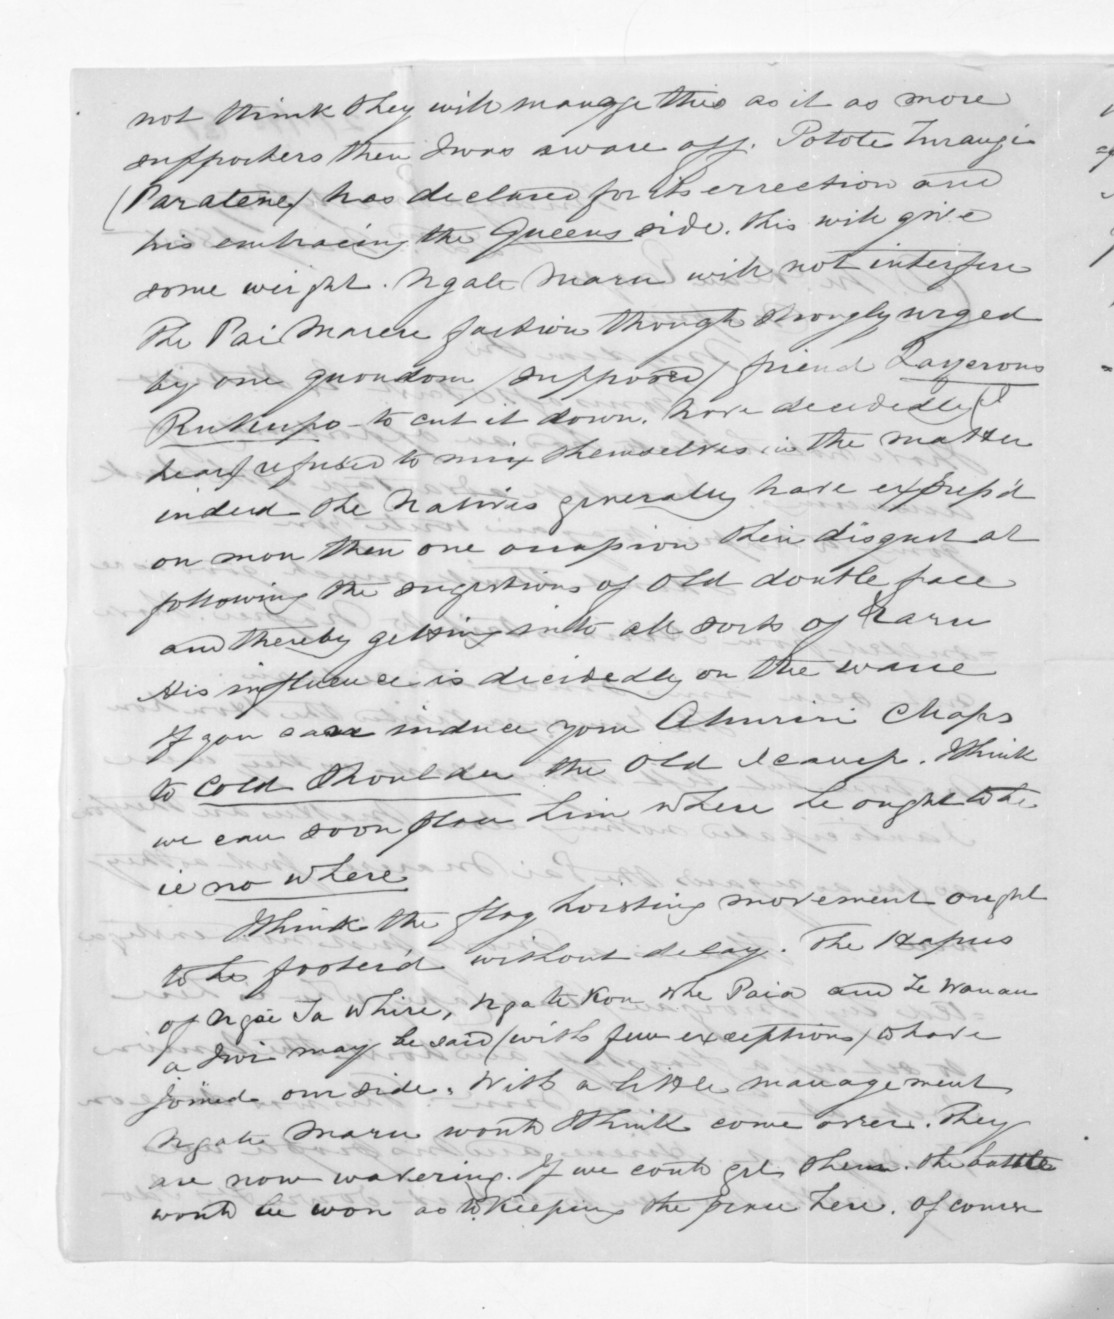 not think they will manage this as it as more
supporters then I was aware off. Potote Turangi
(Paratene) has declared for its errection and
his embracing the Queens side. this will give
some weight. Ngate Maru will not interfere
The Pai Marere faction though strongly urged
by our quondam (supposed) friend Rayerous
Rukupo to cut it down. have decidedly (I
hear) refused to mix themselves in the matter
indeed the Natives generally have exprep'd
on mon then one occapion their disgust at
following the sugestions of Old double face
and thereby getting into all sorts of raru
His influence is decidedly on the wane
If you can induce your Ahuriri Chaps
to cold shoulder the Old Scamp. I think
we can soon place him where he ought to be
ie no where
I think the flag hoisting movement ought
to be foster'd without delay. The Hapus
of Ngai Ta Whire, Ngate Kou whe Paia and Te Wanau
a Iwi may be said (with few exceptions) to have
joined our side. With a little management
Ngate Maru would I think come over. They
are now wavering. If we could get them. the battle
would be won as to keeping the peace here. Of course